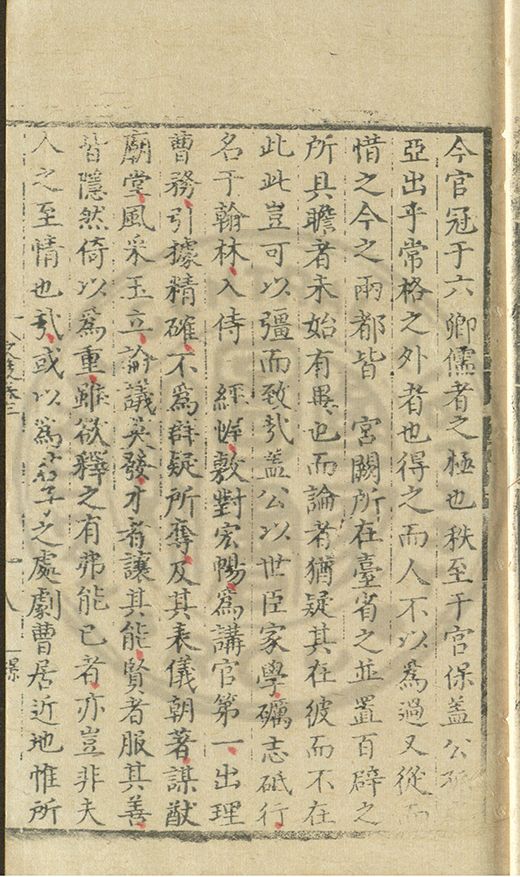 今官冠于六卿儒者之極也秩至于宮保盖公孤
亞出乎常格之外者也得之而人不以爲過又從而
惜之今之兩都皆 宮闕所在臺省之並置百辟之
所具瞻者未始有異也而論者猶疑其在彼而不在
此此豈可以彊而致㢤盖公以世臣家學礪志砥行
名于翰林入侍 經幄敷對宏暢爲講官第一出理
曹務引據精確不爲群疑所奪及其表儀朝著謀猷
廟堂風采玉立論議英發才者讓其能賢者服其善
皆隱然倚以爲重雖欲釋之有弗能已者亦豈非夫
人之至情也㢤或以爲君子之處劇曹居近地惟所